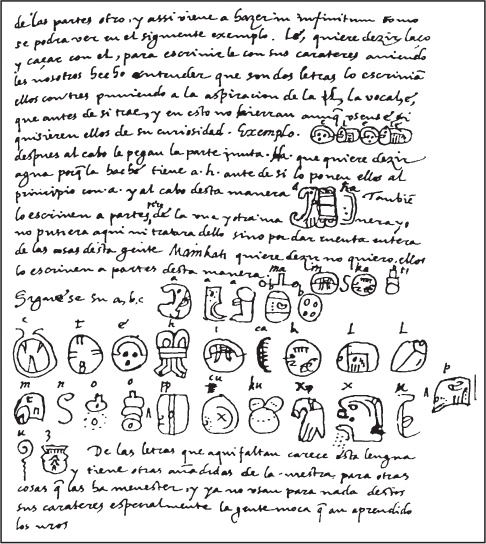 de las partes otro, y assi viene a hazer in infinitum como
se podra ver en el siguiente exemplo. Lé, quiere dezir laço
y caçar con el, para escrivirle con sus carateres aviendo
les nosotros hecho entender que son dos letras lo escrivian
ellos con tres puniendo a la aspiracion de la la vocal é,
que antes de si trae, y en esto no hierran aunq̃ si
quisieren ellos de su curiosidad. Exemplo.
despues al cabo le pegan la parte junta. Ha. que quiere dezir
agua porq̃ la tiene a. h. ante de si lo ponen ellos al
principio con a. y al cabo desta manera a ha Tambiē
lo escriven a partes, pero de la una y otra ma nera, yo
no pusiera aqui ni tratara dello sino por dar cuenta entera
de las cosas desta gente Mamkati quiere dezir no quiero, ellos
lo escriven a partes desta manera: ma ka ti
Siguese su a, b, c a a a b b
c t é h i ca k l l
m n o o pp cu ku x x u p
u z De las letras que aqui faltan carece esta lengua
y tiene otras añadidas de la nuestra, para otras
cosas q̃ las ha menester, y ya no usan para nada destos
sus carateres especialmente la gente moça q̃ an aprendido
los nros